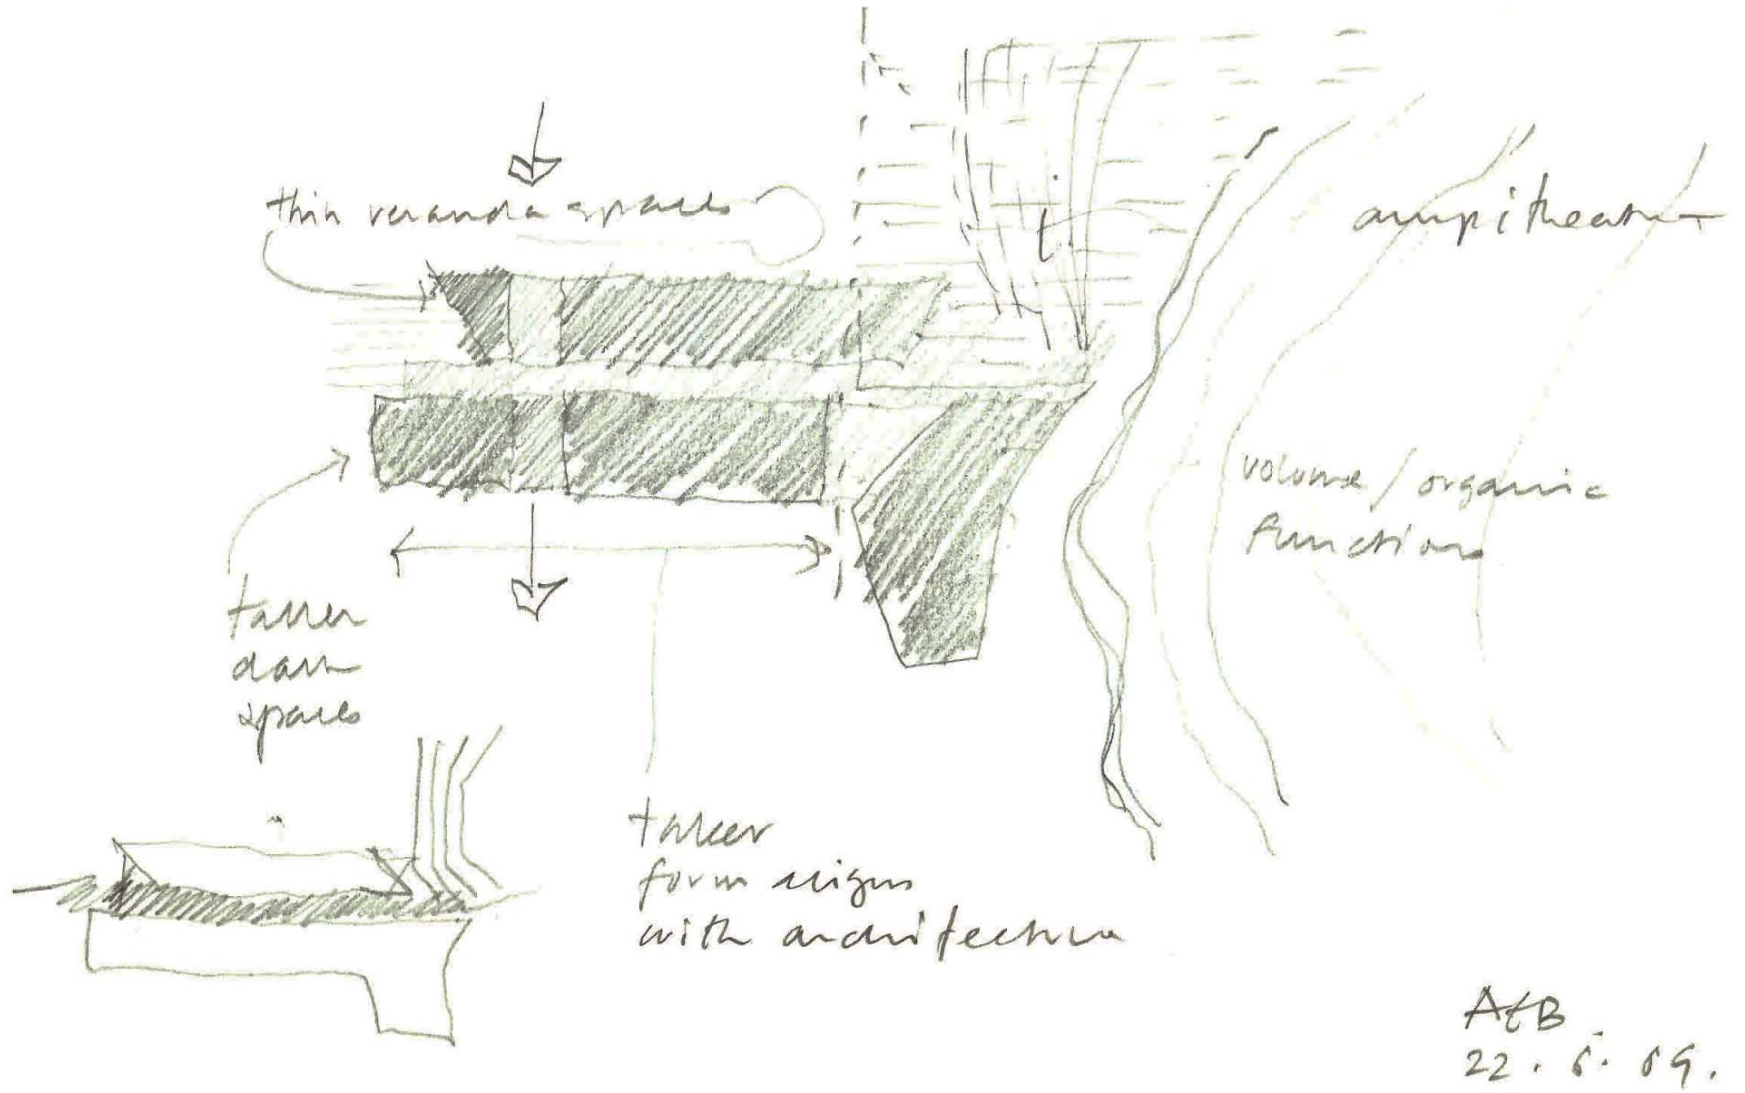 thin veranda spaces
ampitheatre
volume / organic
functions
taller
dark
spaces
taller
form aligns
with architecture
AtB
22 . 6 . 09 .